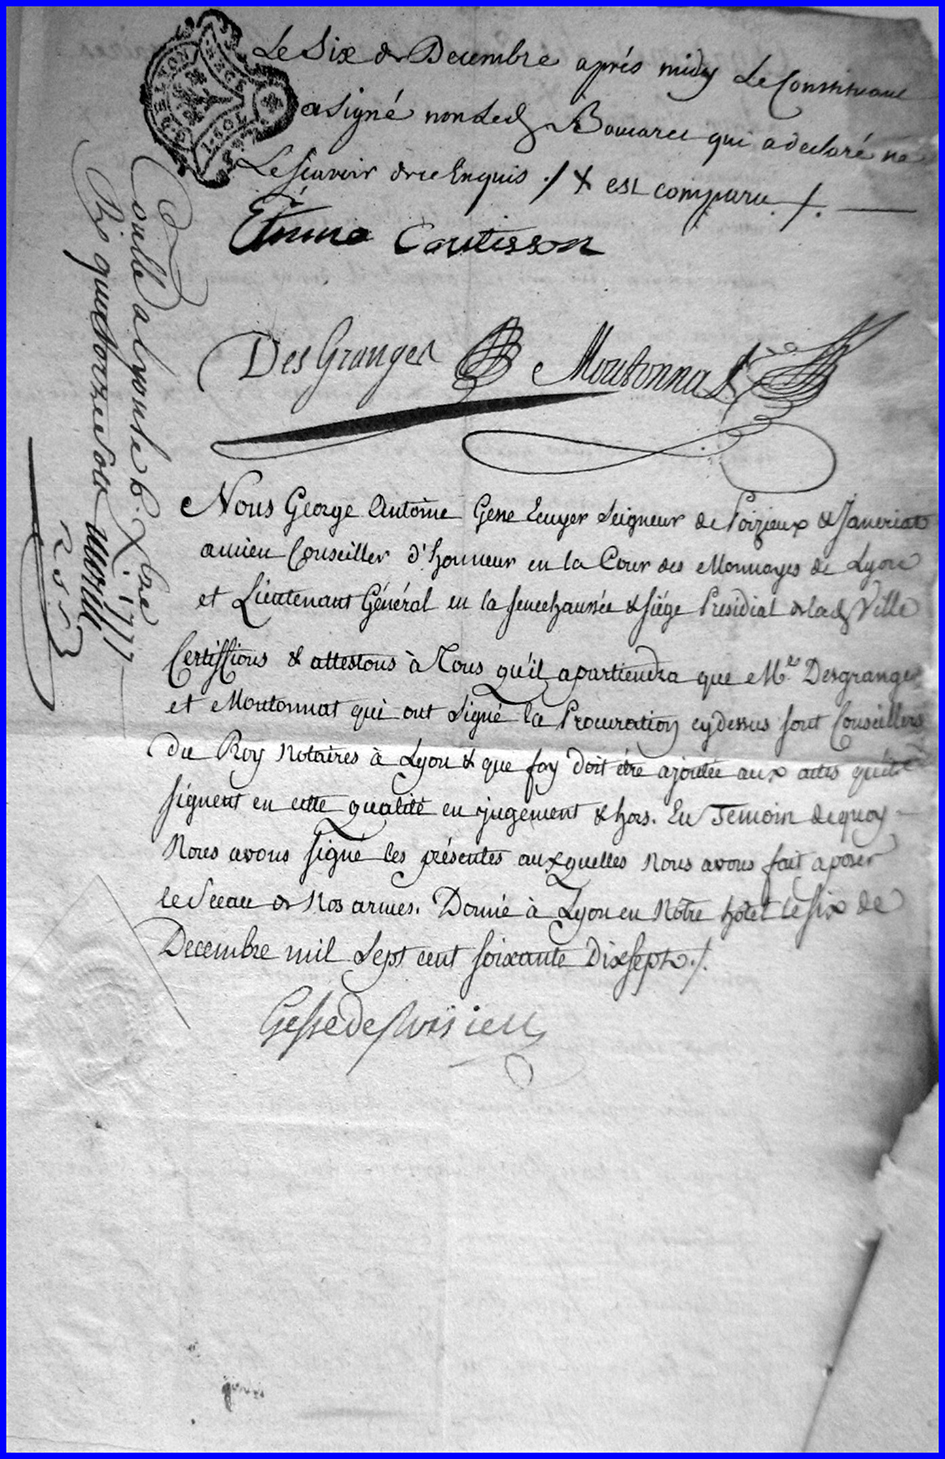 Le Six de Decembre aprés midy Le Constituant
a signé non led. Bomarcé qui a declaré ne
Le scavoir de ce Enquis ./ + est comparu ./.
Etienne Coutisson
DesGranges Moutonnat
Controllé a Lyon le 6. Xbre 1777
Rs quatorze sols
Nous George Antoine Gesse Ecuyer Seigneur de Poizieux & Janeriat
ancien Conseiller d'honneur en la Cour des Monnoyes de Lyon
et Lieutenant Général en la senechaussée & siége Presidial de lad. Ville
Certiffions & attestons à Tous qu'il apartiendra que Mrs. Desgranges
et Moutonnat qui ont signé la Procuration cydessus sont Conseillers
du Roy Notaires à Lyon & que foy doit être ajoutée aux actes qu'ils
signent en cette qualité en jugement & hors. En Temoin dequoy
Nous avons signé les présentes auxquelles Nous avons fait aposer
le Sceau de Nos armes. Donné à Lyon en Notre hôtel le six de
Decembre mil Sept cent soixante Dixsept./.
Gesse de Poisieux